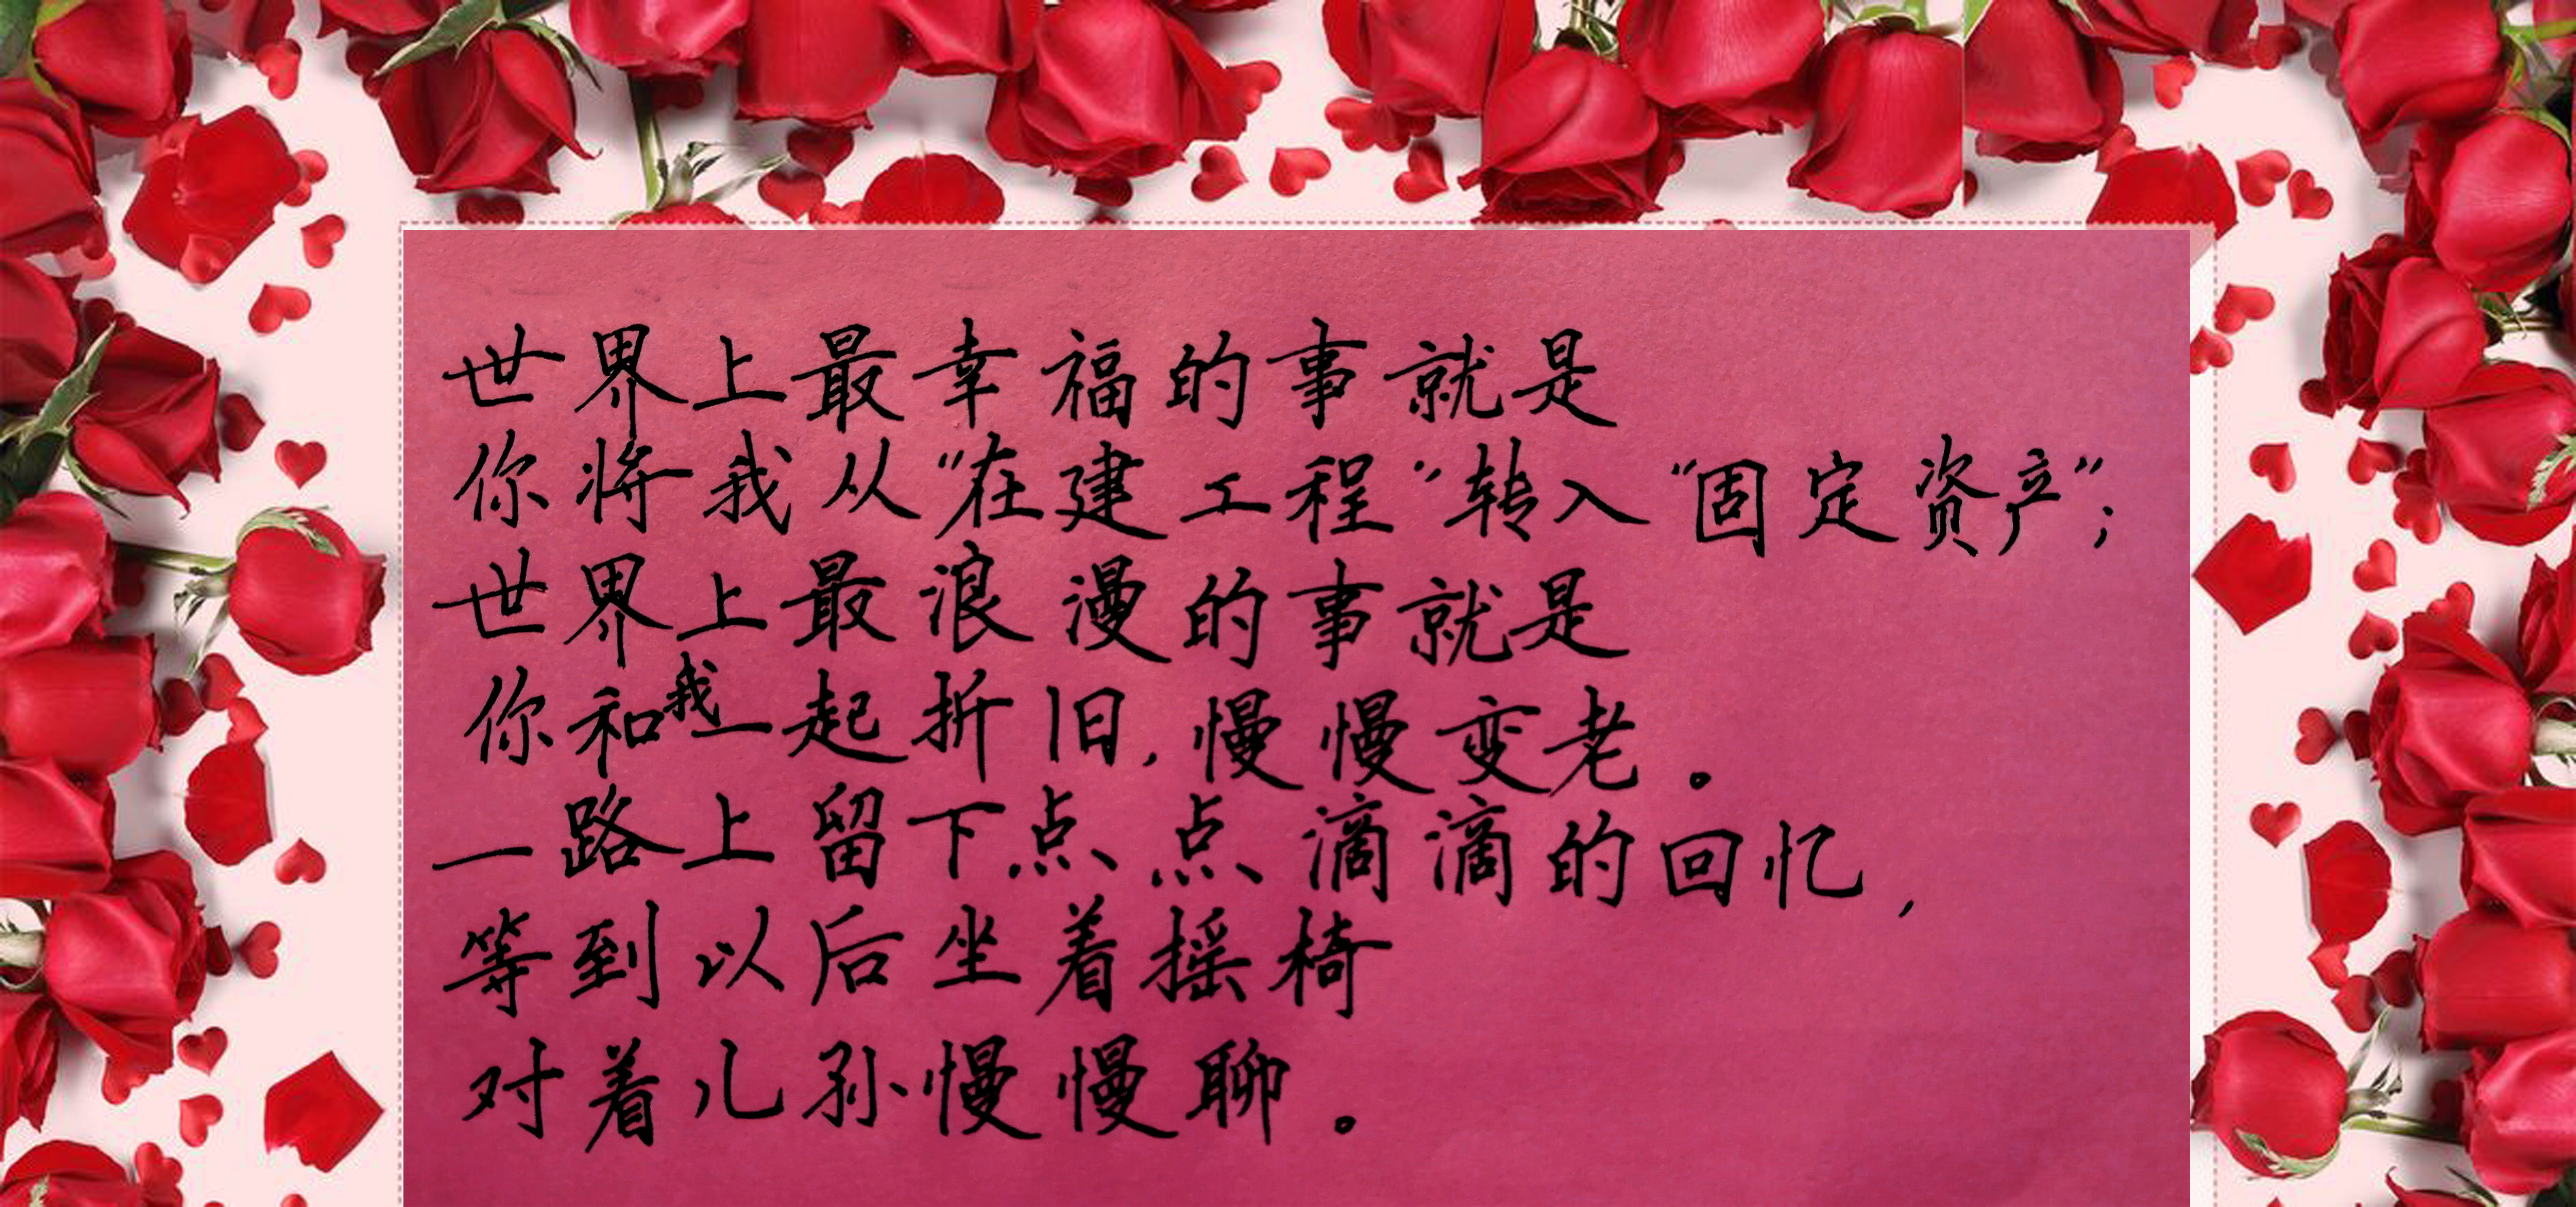 世界上最幸福的事就是
你将我从“在建工程”转入“固定资产”；
世界上最浪漫的事就是
你和我一起折旧，慢慢变老。
一路上留下点点滴滴的回忆，
等到以后坐着摇椅
对着儿孙慢慢聊。